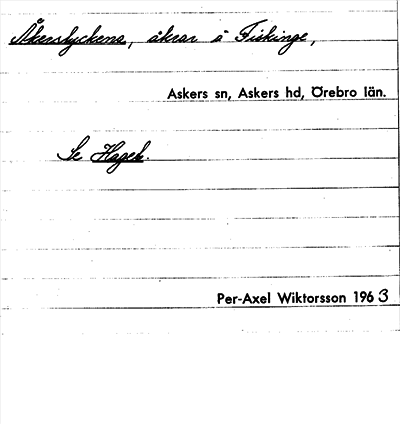 Åkerslyckena, åkrar å Fiskinge,
Askers sn, Askers hd, Örebro län.
Se Hageb.
Per-Axel Wiktorsson 1963